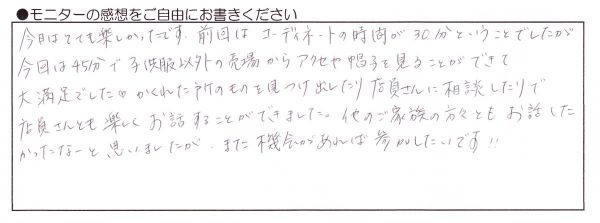 ●モニターの感想をご自由にお書きください
今日はとても楽しかったです。前回はコーディネートの時間が30分ということでしたが
今回は45分で子供服以外の売場からアクセや帽子を見ることができて
大満足でした♡かくれた所のものを見つけ出したり店員さんに相談したりで
店員さんとも楽しくお話することができました。他のご家族の方々ともお話した
かったなーと思いましたが、また機会があれば参加したいです!!